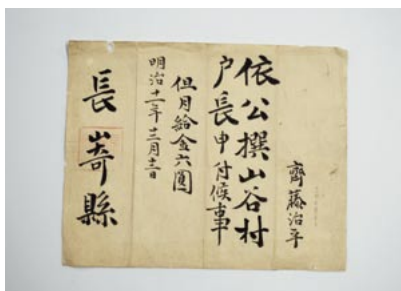 齊藤治平
依公撰山谷村
戸長申付候事
但月給金六圓
明治十一年十二月十二日
長崎縣